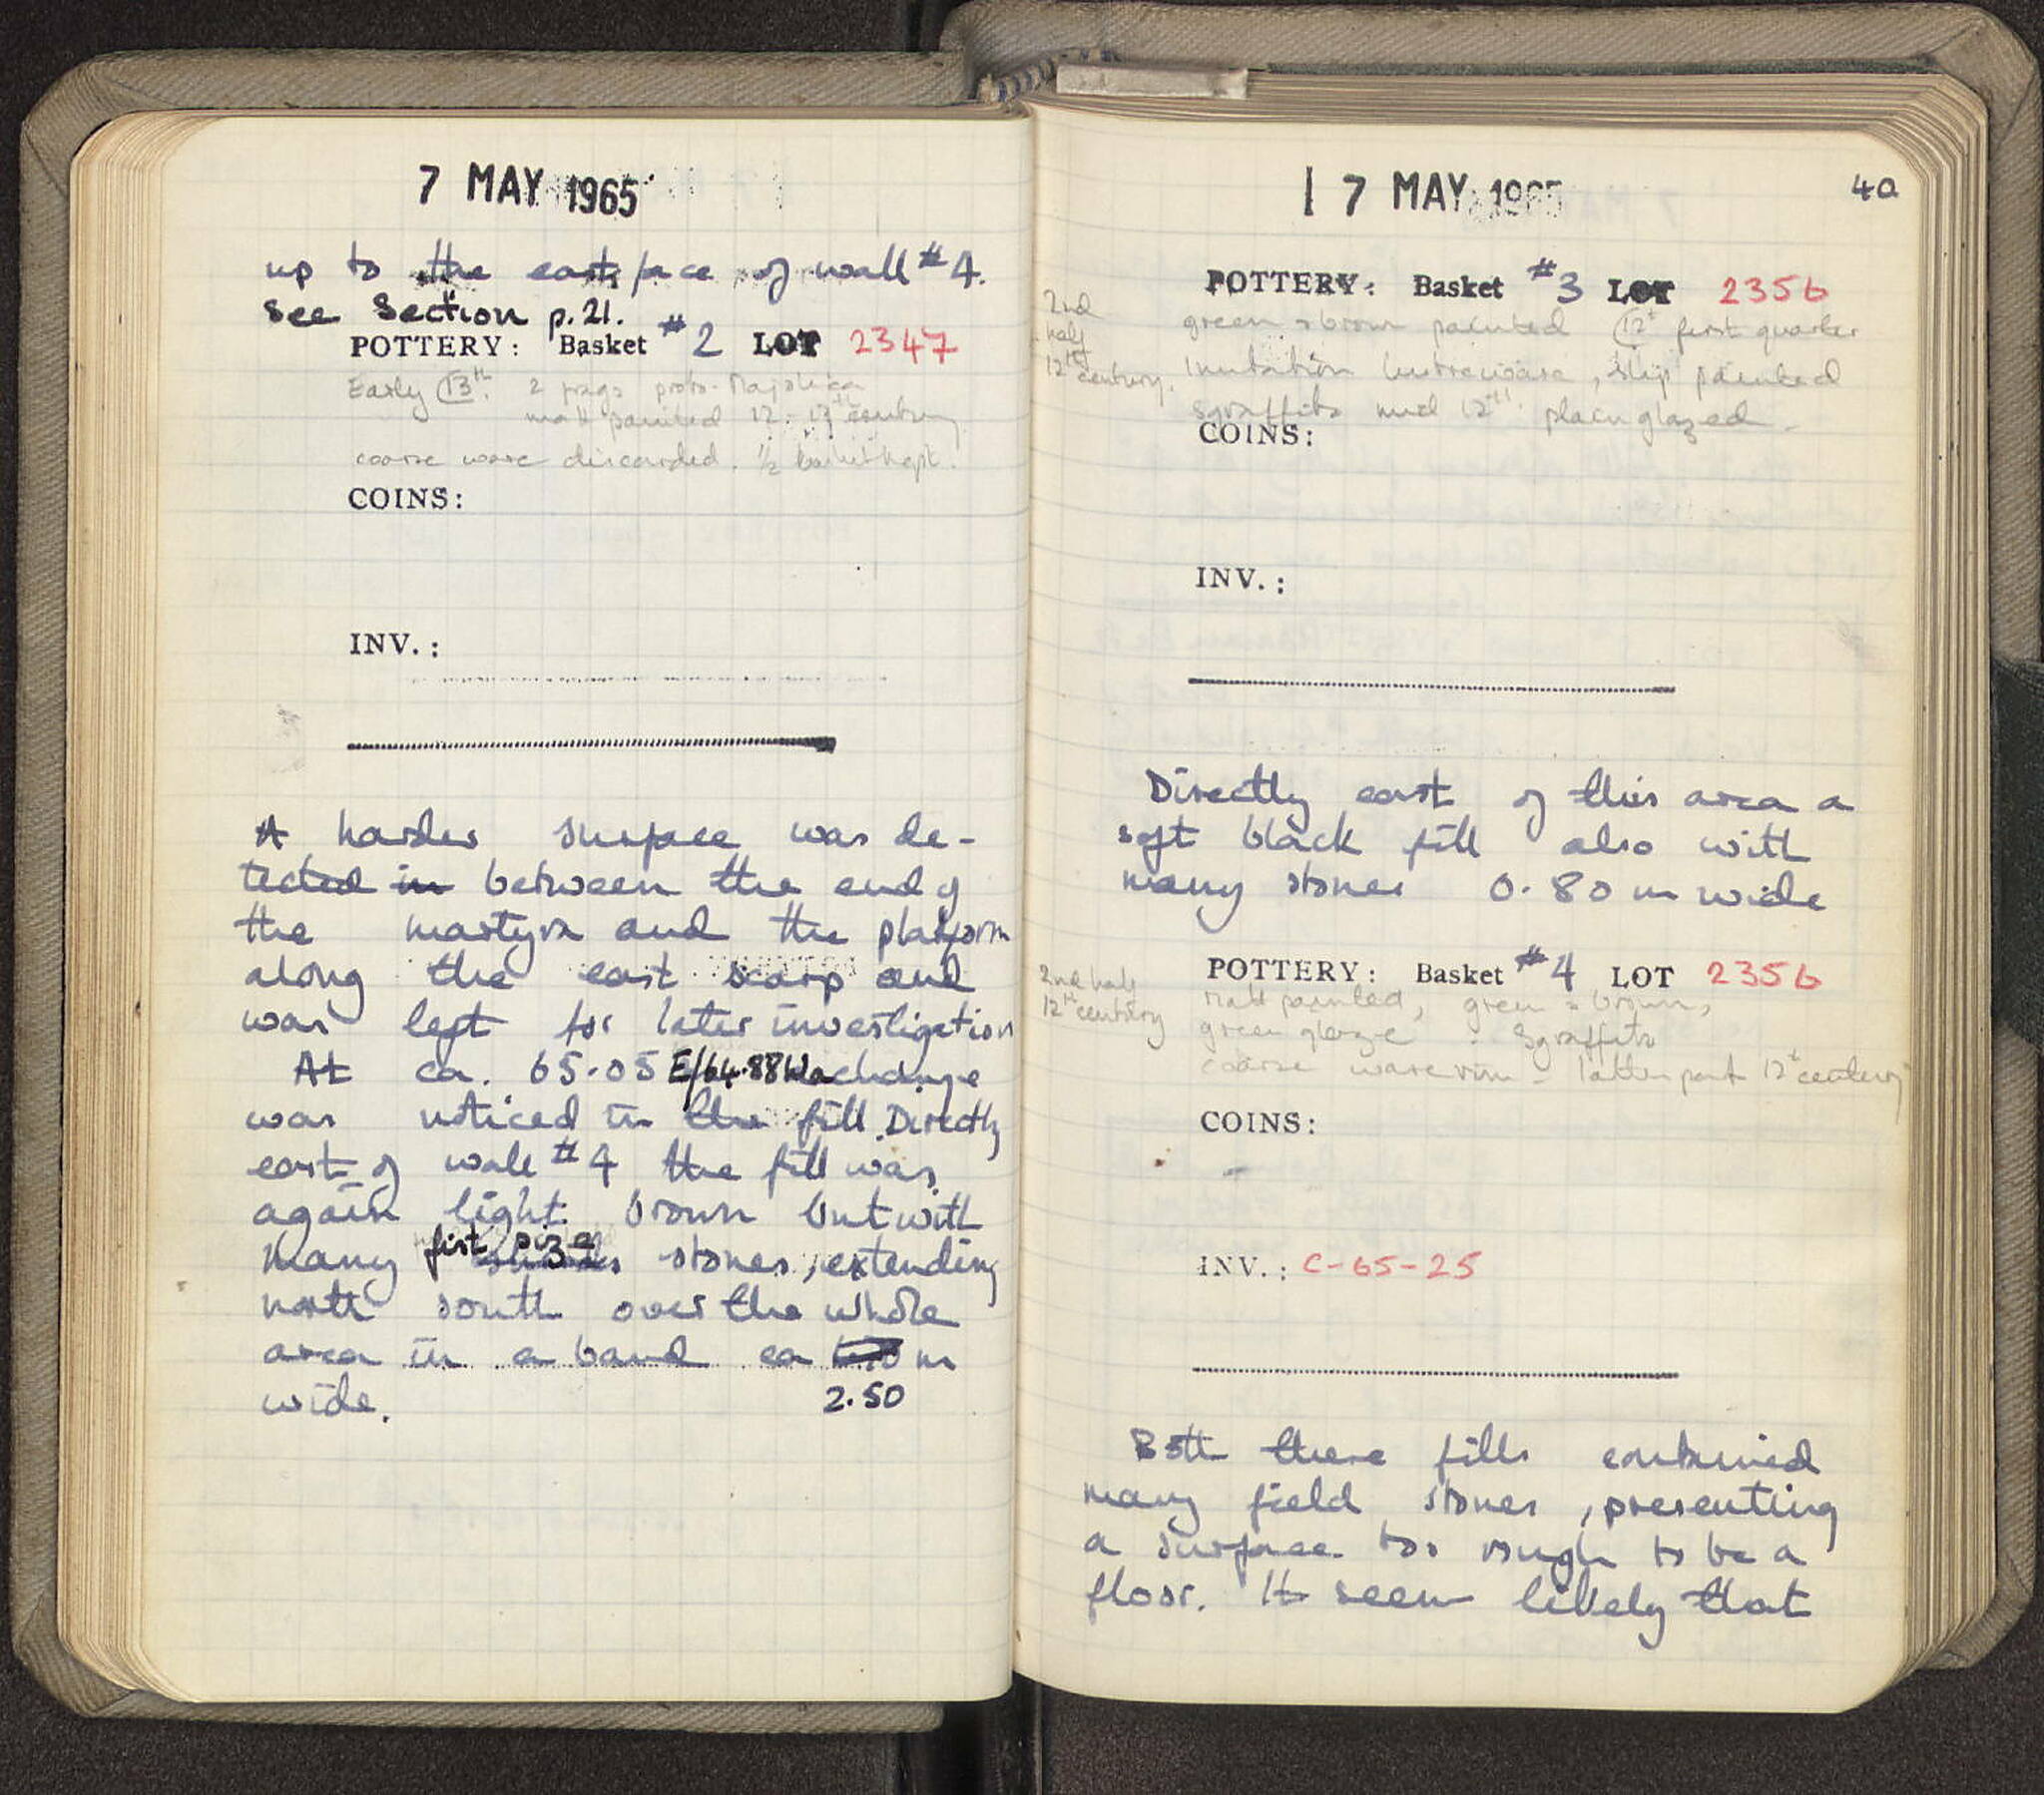 7 MAY 1965
up to the east face of wall #4.
See Section p.21.
POTTERY: Basket #2 LOT 2347
Early 13th. 2 frags proto-Majolica
matt painted 12-13th century.
coarse ware discarded. 1/2 basket kept.
COINS:
INV.:
A harder surface was de-
tected in between the end of
the martyra and the platform
along the east scarp and
was left for later investigation
At ca. 65.05 E/64.88 a change
was noticed in the fill. Directly
east of wall #4 the fill was
again light brown but with
many fist size stones, extending
north south over the whole
area in a band ca m
wide. 2.50
17 MAY 1965
40
POTTERY: Basket #3 LOT 2356
2nd
half
12th
century.
green & brown painted 12th first quarter
Imitation lustreware, slip painted
sgraffito mid 12th. plain glazed.
COINS:
INV.:
Directly east of this area a
soft black fill also with
many stones 0.80 m wide
POTTERY: Basket #4 LOT 2356
2nd half
12th century
Matt painted, green & brown,
green glaze. Sgraffito
coarse ware rim - latter part 12th century
COINS:
INV.: C-65-25
Both these fills contained
many field stones, presenting
a surface too rough to be a
floor. It seem likely that